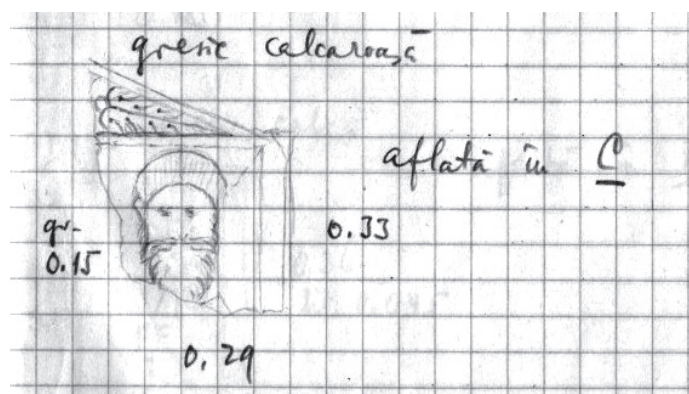 gresie calcaroasă
aflată în C
gr.
0.15
0.33
0.29